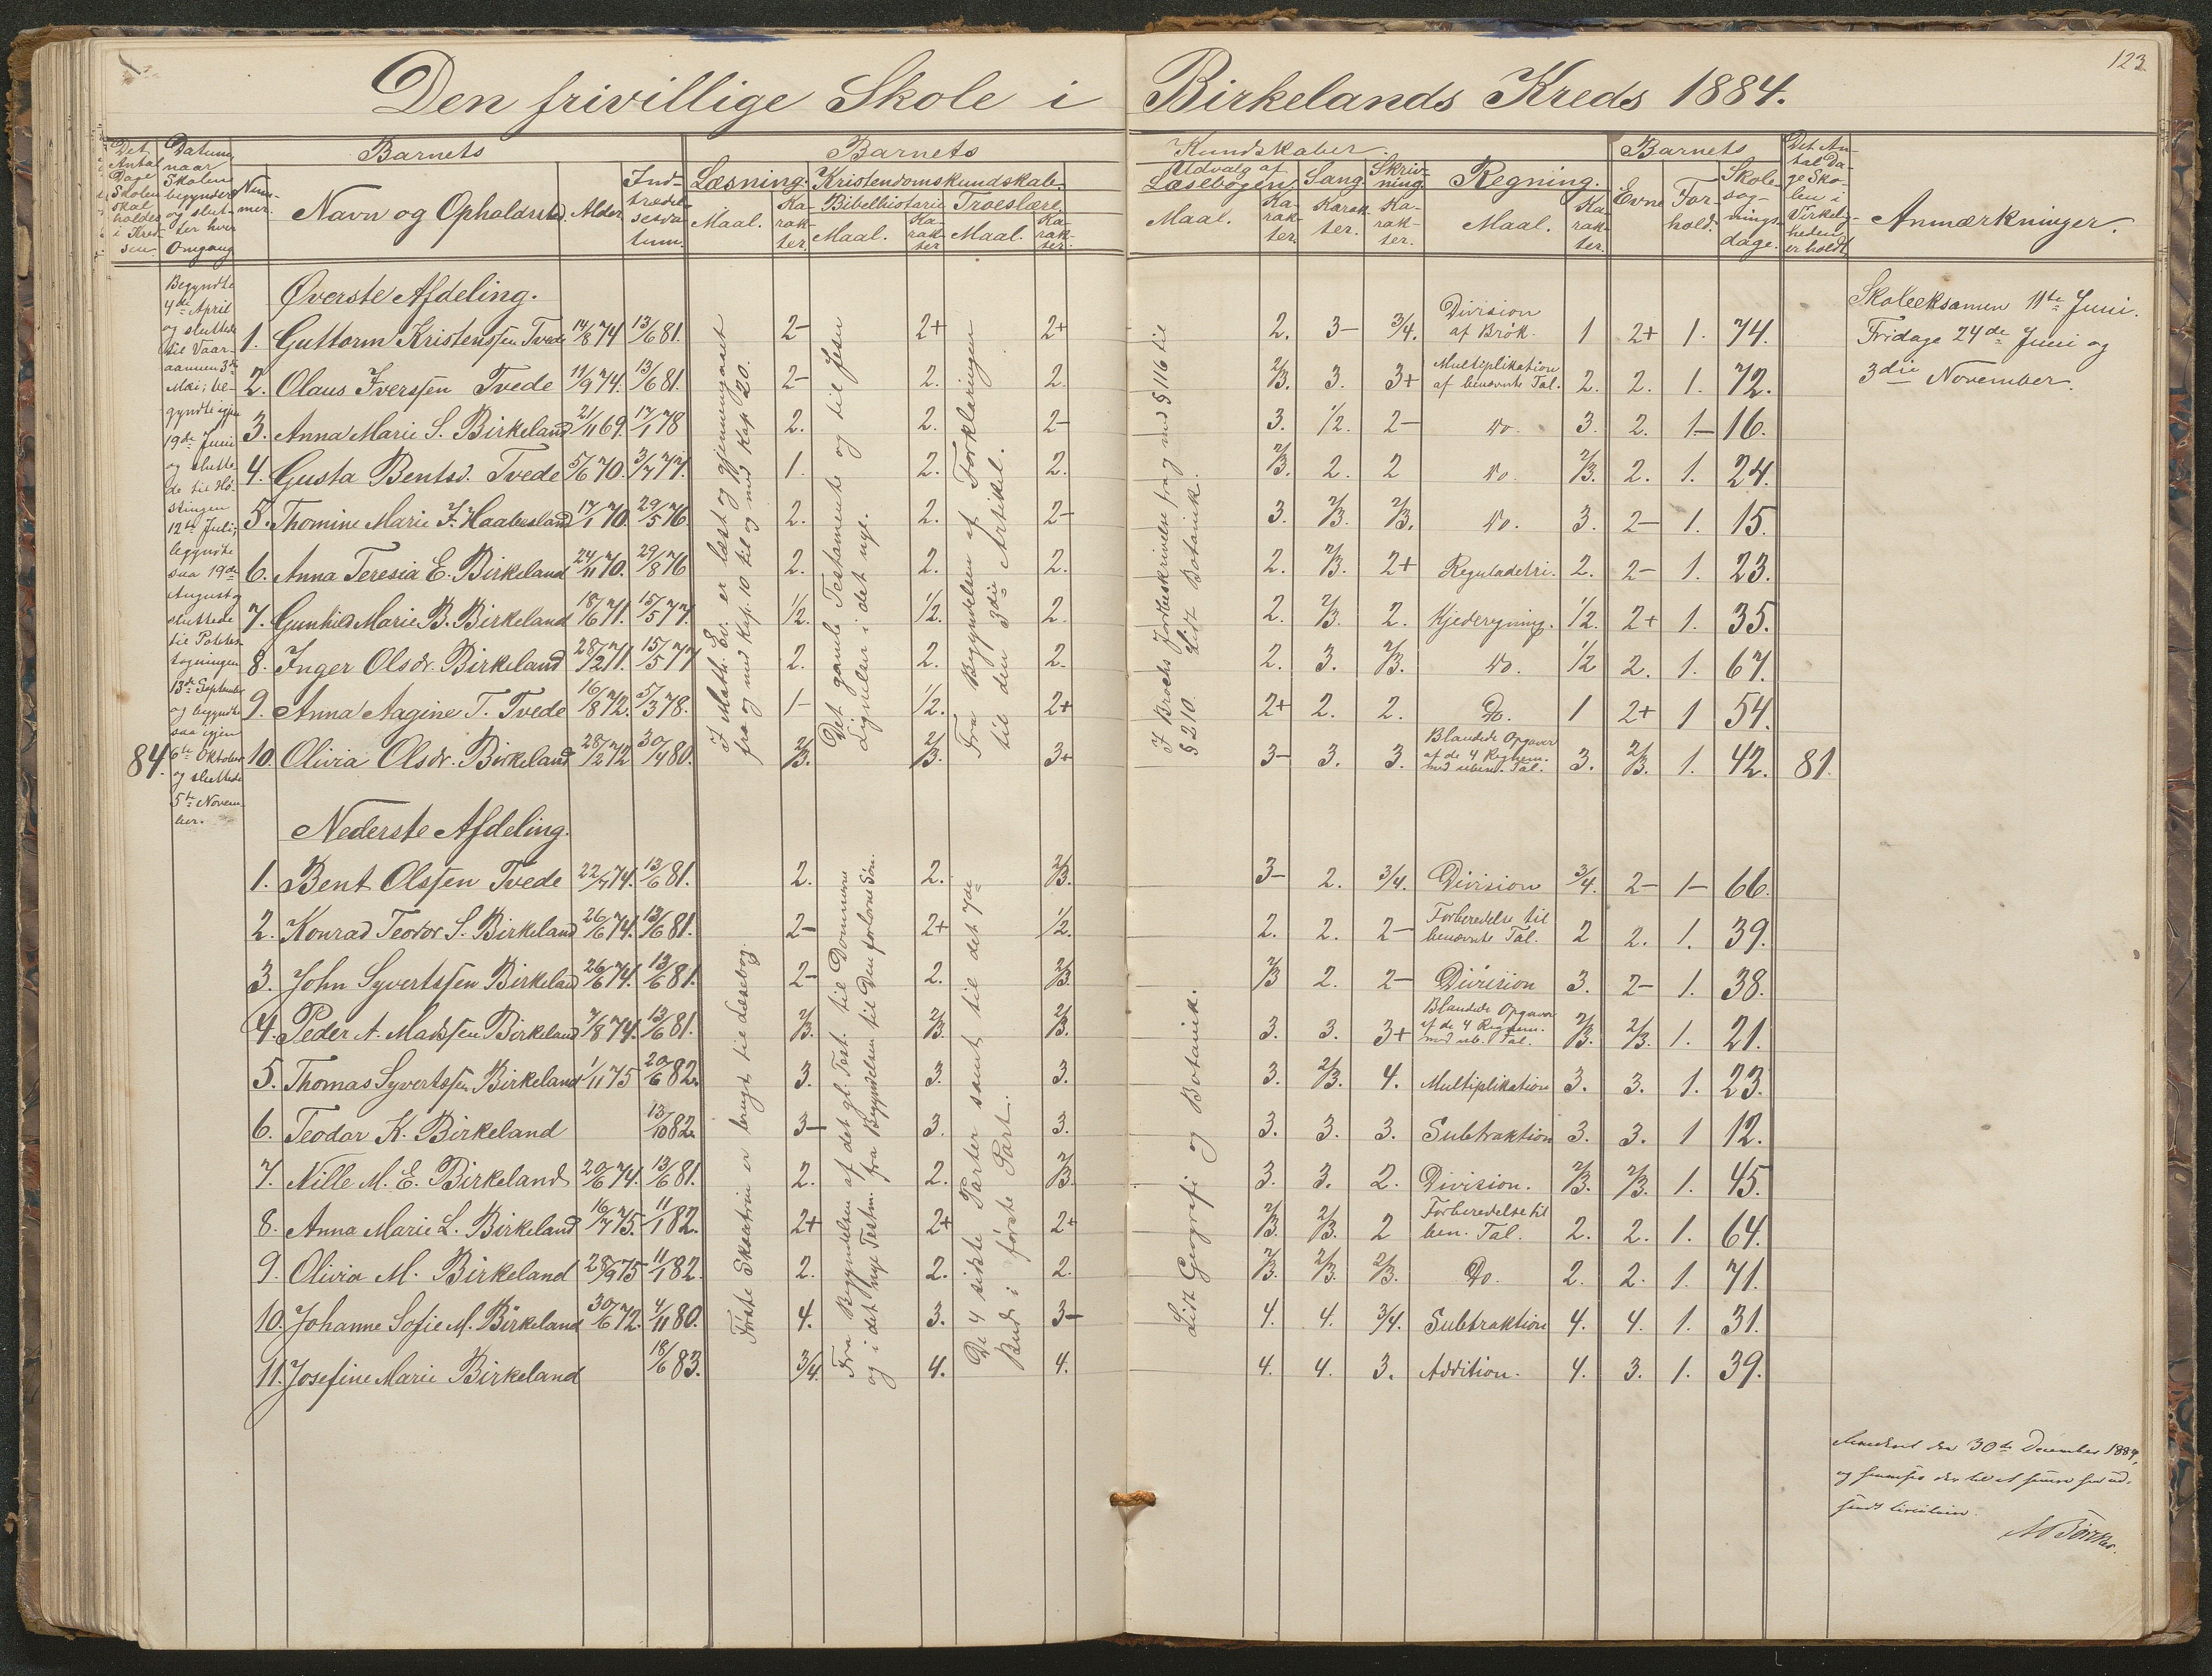 123
Den frivillige Skole i Birkelands Kreds 1884.
Det Antal Dage Skolen skal holdes i Kredsen
Datum, naar Skolen begynder og slutter hver Omgang
Barnets
Nummer.
Navn og Opholdssted.
Alder.
Indtrædelsesdatum.
Barnets
Læsning.
Maal.
Karakter.
Kristendomskundskab.
Bibelhistorie
Maal.
Karakter
Troeslære.
Maal.
Karakter.
Kundskaber.
Udvalg af Læsebogen.
Maal.
Karakter.
Sang.
Karakter.
Skrivning.
Karakter.
Regning.
Maal.
Karakter.
Barnets
Evne
Forhold.
Skolesøgningsdage.
Det Antal Dage Skolen i Virkeligheden er holdt
Anmærkninger.
84.
Begyndte
4de April
og sluttede
til Vaar-
aannen 3die
Mai; be-
gyndte igjen
19de Juni
og slutte-
de til Hø-
stingen
12te Juli;
begyndte
saa 19de
August og
sluttede
til Potetes-
tagningen
13de September
og begyndte
saa igjen
6te Oktober
og sluttede
5te Novem-
ber.
Øverste Afdeling.
1. Guttorm Kristenssen Tvede 14/8 74 13/6 81. 2- 2+ 2+ 2. 3- 3/4. Division af Brøk. 1 2+ 1. 74.
2. Olaus Iverssen Tvede 11/9 74. 13/6 81. 2- 2. 2. 2/3. 3. 3+ Multiplikation af benævnte Tal. 2. 2. 1. 72.
3. Anna Marie S. Birkeland 21/11 69. 17/1 78 2. 2. 2- 3. 1/2. 2- Do. 3. 2. 1- 16.
4. Gusta Bentsd. Tvede 5/6 70. 3/7 77. 1. 2. 2. 2/3. 2. 2 Do. 2/3. 2. 1. 24.
5. Thomine Marie F. Haabesland 17/1 70. 29/5 76. 2. 2. 2- 3. 2/3. 2/3. Do. 3. 2- 1. 15.
6. Anna Teresia E. Birkeland 24/11 70. 29/8 76 2. 2. 2. 2. 2/3. 2+ Reguladetri. 2. 2- 1. 23.
7. Gunhild Marie B. Birkeland 18/6 71. 15/5 77. 1/2. 1/2. 2. 2. 2/3. 2. Kjederegning. 1/2. 2+ 1. 35.
8. Inger Olsdr. Birkeland 28/2 71. 15/5 77 2. 2. 2. 2. 3. 2/3. Do. 1/2 2. 1. 67.
9. Anna Aagine T. Tvede 16/8 72. 5/3 78. 1- 1/2. 2+ 2+ 2. 2. Do. 1 2+ 1 54.
10. Olivia Olsdr. Birkeland 28/2 72 30/4 80. 2/3. 2/3. 3+ 3- 3. 3. Blandede Opgaver af de 4 Regnem. med uben. Tal. 3. 2/3. 1. 42. 81.
I Math. Ev. er læst og gjennemgaaet
fra og med Kap. 10 til og med Kap 20.
Det gamle Testamente og til Jesu
Lignelser i det nye.
Fra Begyndelsen af Forklaringen
til den 3die Artikel.
I Brochs Jordbeskrivelse fra og med § 116 til
§ 210. Lidt Botanik.
Skoleeksamen 11te Juni.
Fridage 24de Juni og
3die November.
Nederste Afdeling.
1. Bent Olssen Tvede 22/7 74. 13/6 81. 2. 2. 2/3. 3- 2. 3/4. Division 3/4. 2- 1- 66.
2. Konrad Teodor S. Birkeland 26/6 74. 13/6 81. 2- 2+ 1/2. 2. 2. 2- Forberedelse til benævnte Tal. 2 2. 1. 39.
3. John Syvertssen Birkeland 26/6 74. 13/6 81. 2- 2. 2/3. 2/3 2. 2- Division 3. 2- 1. 38.
4. Peder A. Madssen Birkeland 7/8 74. 13/6 81. 2/3. 2/3. 2/3. 3. 3. 3+ Blandede Opgaver af de 4 Regnem. med ub. Tal. 2/3. 2/3. 1. 21.
5. Thomas Syvertssen Birkeland 1/11 75 20/6 82. 3. 3. 3. 3. 2/3. 4. Multiplikation 3. 3. 1. 23.
6. Teodor K. Birkeland 13/10 82. 3- 3. 3. 3. 3. 3. Subtraktion 3. 3. 1 12.
7. Nille M. E. Birkeland 20/6 74. 13/6 81. 2. 2. 2/3. 3. 3. 2. Division. 2/3. 2/3. 1. 45.
8. Anna Marie L. Birkeland 16/7 75. 11/1 82. 2+ 2+ 2+ 2/3. 2/3. 2 Forberedelse til ben. Tal. 2. 2. 1. 64.
9. Olivia M. Birkeland 28/9 75 11/1 82. 2. 2. 2. 2/3. 2/3. 2/3. Do. 2. 2. 1. 71.
10. Johanne Sofie M. Birkeland 30/6 72. 4/11 80. 4. 3. 3- 4. 4. 3/4. Subtraktion 4. 4. 1. 31.
11. Josefine Marie Birkeland 18/6 83. 3/4. 4. 4. 4. 4. 3. Addition. 4. 3. 1. 39.
Første Skoletrin er brugt til Læsebog.
Fra Begyndelsen af det gl. Test. til Dommerne
og i det nye Testm. fra Begyndelsen til Den forlorne Søn.
De 4 sidste Parter samt til det 7de
Bud i første Part.
Lidt Geografi og Botanik.
den 30de December 1884,
og